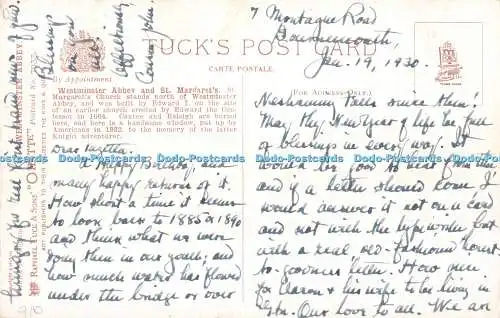 7 Montague Road
Bournemouth,
Jan. 19, 1930.
TUCK'S POST CARD
CARTE POSTALE.
By Appointment
Westminster Abbey and St. Margaret's. St.
Margaret's Church stands north of Westminster
Abbey, and was built by Edward I. on the site
of an earlier church erected by Edward the Con-
fessor in 1064. Caxton and Raleigh are buried
here, and here is a handsome window, put up by
Americans in 1882, to the memory of the latter
Knight adventurer.
(FOR ADDRESS ONLY.)
Dear
A Happy Birthday, and
many happy returns of it.
How short a time it seems
to look back to 1885 or 1890
and think what we were
doing then in our youth; and
how much water has flowed
under the bridge or over
Neshaminy Falls since then!
May thy New Year of life be full
of blessings in every way. It
would be good to hear from thee,
and if a letter should come I
would answer it not on a card
and not with the typewriter but
with a real old-fashioned honest-
to-goodness letter. How nice
for Aaron & his wife to be living in
Our love to all. We are
hungry for
Blessings
on you
all!
Affectionately,
Cousin John
WESTMINSTER ABBEY.
RAPHAEL TUCK & SONS' "OILETTE"
Dodo-Postcards Dodo-Postcards Dodo-Postcards Dodo-Postcards Dodo-Postcards Dodo-Postcards
9/0